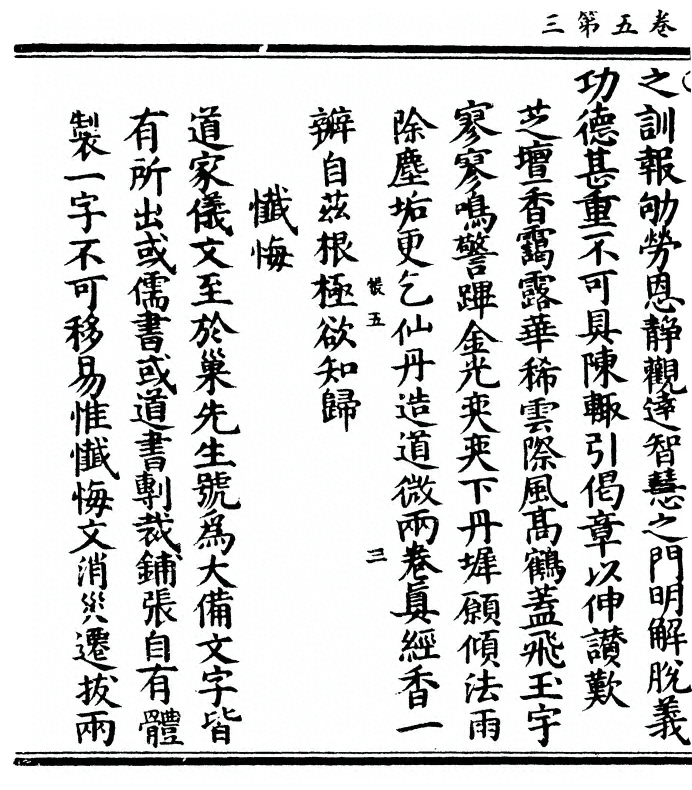 卷五第三
之訓報劬勞恩静觀達智慧之門明解脫義
功德甚重不可具陳輙引偈章以伸讃歎
芝壇香靄露華稀雲際風髙鶴蓋飛玉宇
寥寥鳴警蹕金光奕奕下丹墀願傾法雨
除塵垢更乞仙丹造道微兩卷眞經香一
張五 三
辦自兹根極欲知歸
懺悔
道家儀文至於巢先生號爲大備文字皆
有所出或儒書或道書剸裁鋪張自有體
製一字不可移易惟懺悔文消災遷拔兩